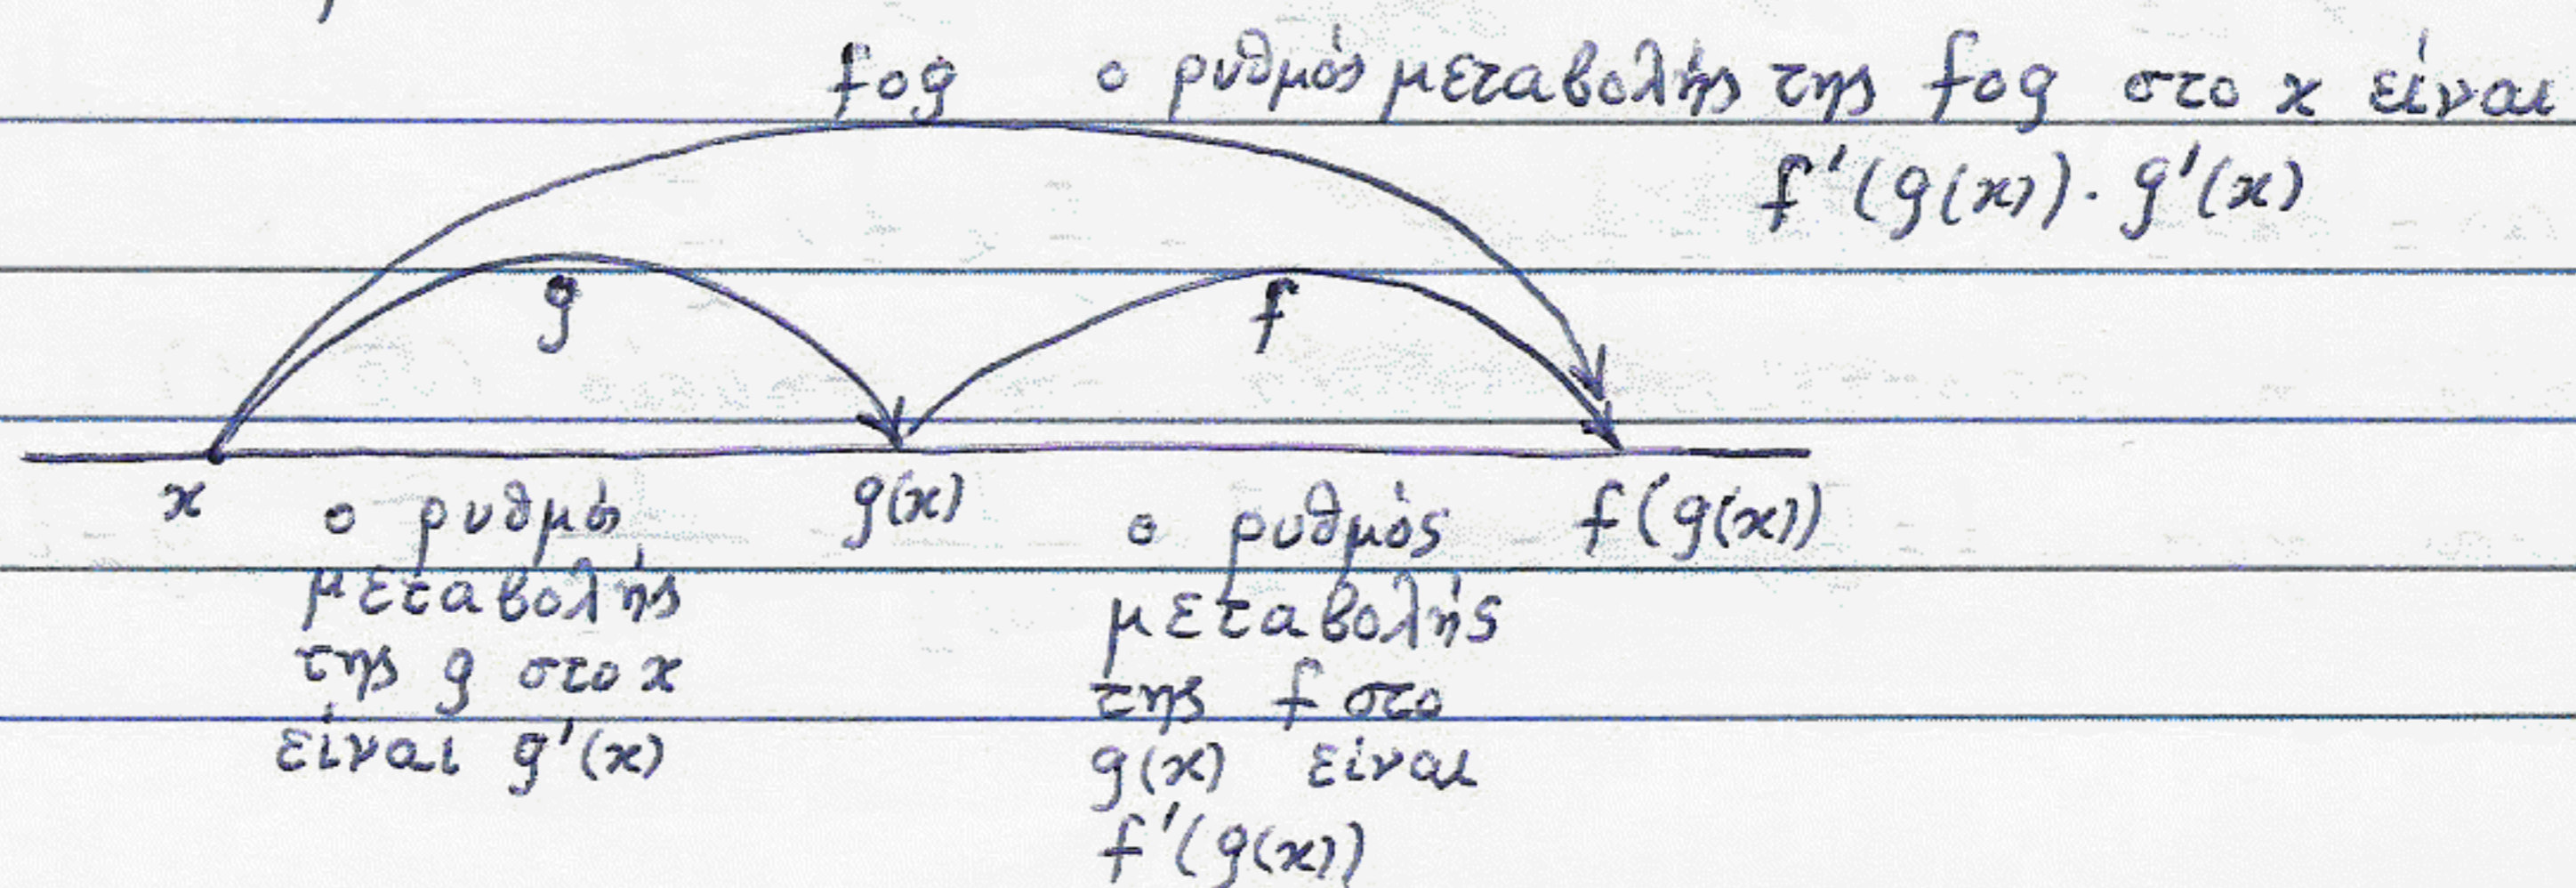 fog ο ρυθμός μεταβολής της fog στο x είναι
f'(g(x)) · g'(x)
g
f
x
g(x)
f(g(x))
ο ρυθμός
μεταβολής
της g στο x
είναι g'(x)
ο ρυθμός
μεταβολής
της f στο
g(x) είναι
f'(g(x))